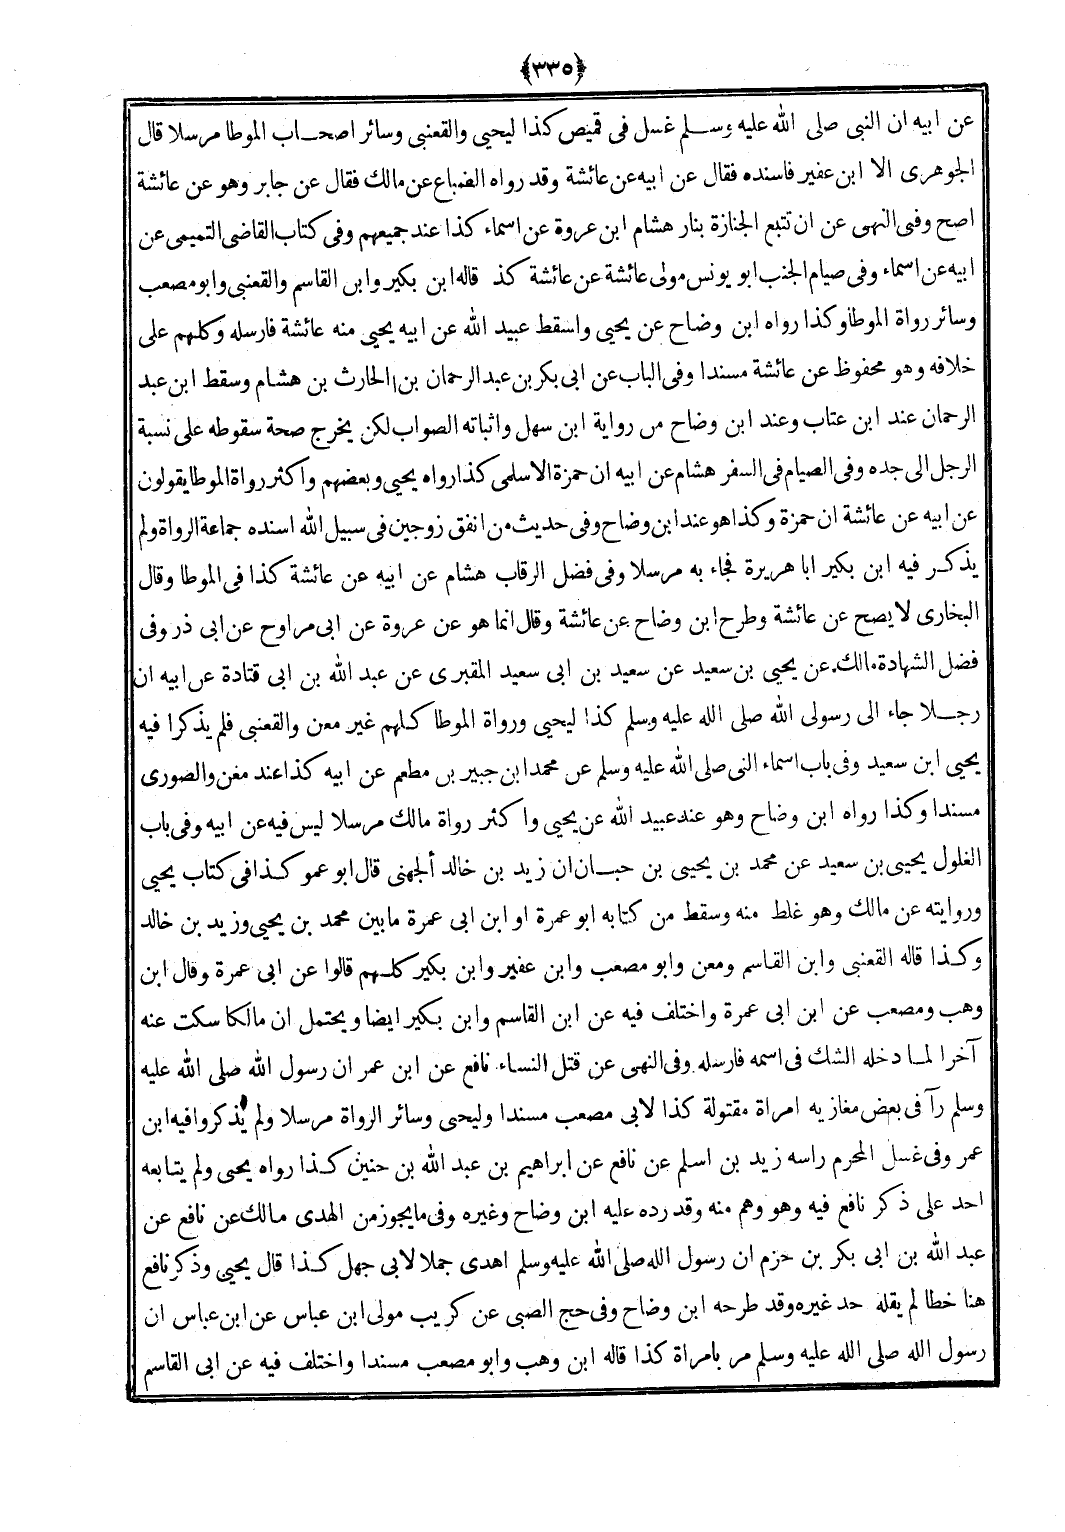 ﴿٣٣٥﴾
عن ابيه ان النبى صلى الله عليه وسلم غسل فى قميص كذا ليحيى والقعنبى وسائر اصحاب الموطا مرسلا قال
الجوهرى الا ابن عفير فاسنده فقال عن ابيه عن عائشة وقد رواه الضباع عن مالك فقال عن جابر وهو عن عائشة
اصح وفى النهى عن ان تتبع الجنازة بنار هشام ابن عروة عن اسماء كذا عند جميعهم وفى كتاب القاضى التميمى عن
ابيه عن اسماء وفى صيام الجنب ابو يونس مولى عائشة عن عائشة كذ قاله ابن بكير وابن القاسم والقعنبى وابو مصعب
وسائر رواة الموطا وكذا رواه ابن وضاح عن يحيى واسقط عبيد الله عن ابيه يحيى منه عائشة فارسله وكلهم على
خلافه وهو محفوظ عن عائشة مسندا وفى الباب عن ابى بكر بن عبد الرحمان بن الحارث بن هشام وسقط ابن عبد
الرحمان عند ابن عتاب وعند ابن وضاح من رواية ابن سهل واثباته الصواب لكن يخرج صحة سقوطه على نسبة
الرجل الى جده وفى الصيام فى السفر هشام عن ابيه ان حمزة الاسلمى كذا رواه يحيى وبعضهم واكثر رواة الموطا يقولون
عن ابيه عن عائشة ان حمزة وكذا هو عند ابن وضاح وفى حديث من انفق زوجين فى سبيل الله اسنده جماعة الرواة ولم
يذكر فيه ابن بكير ابا هريرة فجاء به مرسلا وفى فضل الرقاب هشام عن ابيه عن عائشة كذا فى الموطا وقال
البخارى لا يصح عن عائشة وطرح ابن وضاح عن عائشة وقال انما هو عن عروة عن ابى مراوح عن ابى ذر وفى
فضل الشهادة مالك عن يحيى بن سعيد عن سعيد بن ابى سعيد المقبرى عن عبد الله بن ابى قتادة عن ابيه ان
رجلا جاء الى رسولى الله صلى الله عليه وسلم كذا ليحيى ورواة الموطا كلهم غير معن والقعنبى فلم يذكرا فيه
يحيى ابن سعيد وفى باب اسماء النبى صلى الله عليه وسلم عن محمد ابن جبير بن مطعم عن ابيه كذا عند مغن والصورى
مسندا وكذا رواه ابن وضاح وهو عند عبيد الله عن يحيى واكثر رواة مالك مرسلا ليس فيه عن ابيه وفى باب
الغلول يحيى بن سعيد عن محمد بن يحيى بن حبان ان زيد بن خالد ألجهنى قال ابو عمو كذا فى كتاب يحيى
وروايته عن مالك وهو غلط منه وسقط من كتابه ابو عمرة او ابن ابى عمرة ما بين محمد بن يحيى وزيد بن خالد
وكذا قاله القعنبى وابن القاسم ومعن وابو مصعب وابن عفير وابن بكير كلهم قالوا عن ابى عمرة وقال ابن
وهب ومصعب عن ابن ابى عمرة واختلف فيه عن ابن القاسم وابن بكير ايضا ويحتمل ان مالكا سكت عنه
آخرا لما دخله الشك فى اسمه فارسله وفى النهى عن قتل النساء نافع عن ابن عمر ان رسول الله صلى الله عليه
وسلم رآ فى بعض مغازيه امراة مقتولة كذا لابى مصعب مسندا وليحيى وسائر الرواة مرسلا ولم يذكروا فيه ابن
عمر وفى غسل المحرم راسه زيد بن اسلم عن نافع عن ابراهيم بن عبد الله بن حنين كذا رواه يحيى ولم يتابعه
احد على ذكر نافع فيه وهو وهم منه وقد رده عليه ابن وضاح وغيره وفى ما يجوز من الهدى مالك عن نافع عن
عبد الله بن ابى بكر بن حزم ان رسول الله صلى الله عليه وسلم اهدى جملا لابى جهل كذا قال يحيى وذكر نافع
هنا خطا لم يقله حد غيره وقد طرحه ابن وضاح وفى حج الصبى عن كريب مولى ابن عباس عن ابن عباس ان
رسول الله صلى الله عليه وسلم مر بامراة كذا قاله ابن وهب وابو مصعب مسندا واختلف فيه عن ابى القاسم